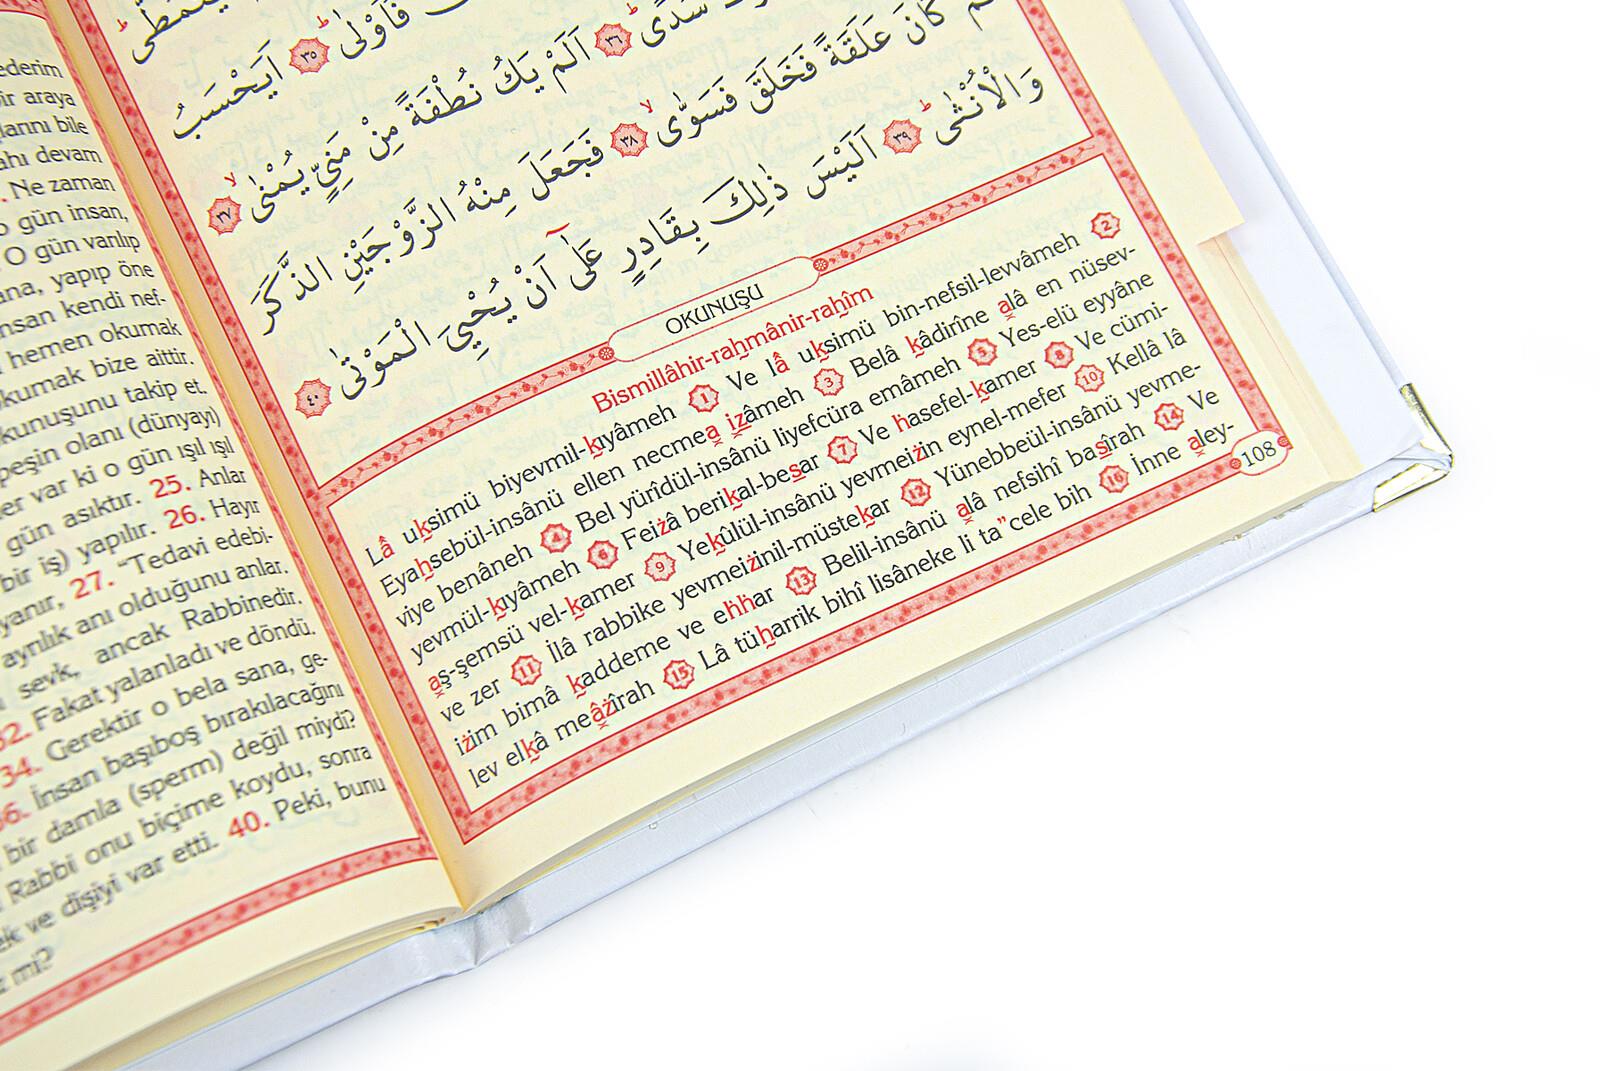 ederim
bir araya
larını bile
ahı devam
. Ne zaman
o gün insan,
. O gün varılıp
ana, yapıp öne
nsan kendi nef-
hemen okumak
kumak bize aittir.
kunuşunu takip et.
peşin olanı (dünyayı)
er var ki o gün ışıl ışıl
gün asıktır. 25. Anlar
bir iş) yapılır. 26. Hayır
yanır, 27. "Tedavi edebi-
ayrılık anı olduğunu anlar.
sevk, ancak Rabbinedir.
32. Fakat yalanladı ve döndü.
34. Gerektir o bela sana, ge-
36. İnsan başıboş bırakılacağını
bir damla (sperm) değil miydi?
Rabbi onu biçime koydu, sonra
ek ve dişiyi var etti. 40. Peki, bunu
mi?
فَاَوْلٰى ٣٥ اَيَحْسَبُ
سُدًى ٣٦ اَلَمْ يَكُ نُطْفَةً مِنْ مَنِيٍّ يُمْنٰى ٣٧
كَانَ عَلَقَةً فَخَلَقَ فَسَوّٰى ٣٨ فَجَعَلَ مِنْهُ الزَّوْجَيْنِ الذَّكَرَ
وَالْاُنْثٰى ٣٩ اَلَيْسَ ذٰلِكَ بِقَادِرٍ عَلٰٓى اَنْ يُحْيِيَ الْمَوْتٰى ٤٠
OKUNUŞU
Bismillâhir-rahmânir-rahîm
Lâ uksimü biyevmil-kıyâmeh 1 Ve lâ uksimü bin-nefsil-levvâmeh 2
Eyahsebül-insânü ellen necmea ızâmeh 3 Belâ kâdirîne alâ en nüsev-
viye benâneh 4 Bel yürîdül-insânü liyefcüra emâmeh 5 Yes-elü eyyâne
yevmül-kıyâmeh 6 Feiżâ berikal-besar 7 Ve hasefel-kamer 8 Ve cümi-
aş-şemsü vel-kamer 9 Yekûlül-insânü yevmeiżin eynel-mefer 10 Kellâ lâ
ve zer 11 İlâ rabbike yevmeiżinil-müstekar 12 Yünebbeül-insânü yevme-
iżim bimâ kaddeme ve ehhar 13 Belil-insânü alâ nefsihî basîrah 14 Ve
lev elkâ meâżîrah 15 Lâ tüharrik bihî lisâneke li ta"cele bih 16 İnne aley-
108